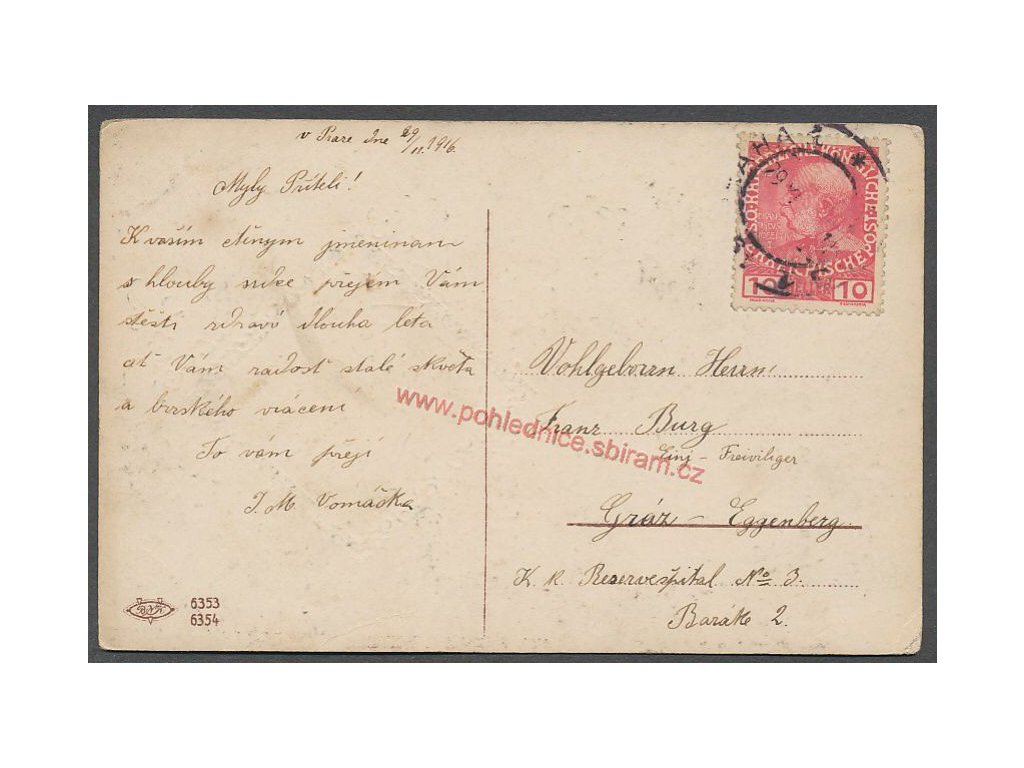 v Praze dne 29/11. 1916.
Myly Příteli!
K vaším ctěnym jmeninam
s hlouby srdce přejém Vám
stěsti zdraví dlouha leta
ať Vám radost stalé skvěta
a brzského vrácení
To vám přejí
J. M. Vomáčka
6353
6354
Wohlgeborrn Herrn
Franz Burg
Einj - Freiviliger
Gráz - Eggenberg
K. k. Reservespital No 3.
Baráke 2.
10 10
www.pohlednice.sbiram.cz